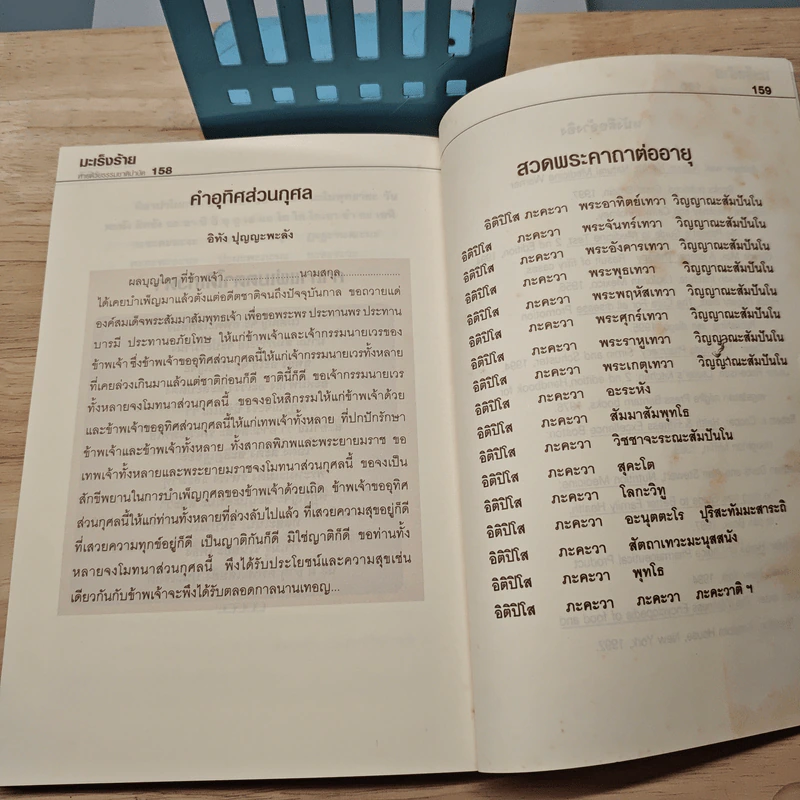 มะเร็งร้าย
สารพัดวิธีธรรมชาติบำบัด 158
คำอุทิศส่วนกุศล
อิทัง ปุญญะพะลัง
ผลบุญใดๆ ที่ข้าพเจ้า..............................นามสกุล..............................
ได้เคยบำเพ็ญมาแล้วตั้งแต่อดีตชาติจนถึงปัจจุบันกาล ขอถวายแด่
องค์สมเด็จพระสัมมาสัมพุทธเจ้า เพื่อขอพระพร ประทานพร ประทาน
บารมี ประทานอภัยโทษ ให้แก่ข้าพเจ้าและเจ้ากรรมนายเวรของ
ข้าพเจ้า ซึ่งข้าพเจ้าขออุทิศส่วนกุศลนี้ให้แก่เจ้ากรรมนายเวรทั้งหลาย
ที่เคยล่วงเกินมาแล้วแต่ชาติก่อนก็ดี ชาตินี้ก็ดี ขอเจ้ากรรมนายเวร
ทั้งหลายจงโมทนาส่วนกุศลนี้ ขอจงอโหสิกรรมให้แก่ข้าพเจ้าด้วย
และข้าพเจ้าขออุทิศส่วนกุศลนี้ให้แก่เทพเจ้าทั้งหลาย ที่ปกปักรักษา
ข้าพเจ้าและข้าพเจ้าทั้งหลาย ทั้งสากลพิภพและพระยายมราช ขอ
เทพเจ้าทั้งหลายและพระยายมราชจงโมทนาส่วนกุศลนี้ ขอจงเป็น
สักขีพยานในการบำเพ็ญกุศลของข้าพเจ้าด้วยเถิด ข้าพเจ้าขออุทิศ
ส่วนกุศลนี้ให้แก่ท่านทั้งหลายที่ล่วงลับไปแล้ว ที่เสวยความสุขอยู่ก็ดี
ที่เสวยความทุกข์อยู่ก็ดี เป็นญาติกันก็ดี มิใช่ญาติก็ดี ขอท่านทั้ง
หลายจงโมทนาส่วนกุศลนี้ พึงได้รับประโยชน์และความสุขเช่น
เดียวกันกับข้าพเจ้าจะพึงได้รับตลอดกาลนานเทอญ...
159
สวดพระคาถาต่ออายุ
อิติปิโส ภะคะวา พระอาทิตย์เทวา วิญญาณะสัมปันโน
อิติปิโส ภะคะวา พระจันทร์เทวา วิญญาณะสัมปันโน
อิติปิโส ภะคะวา พระอังคารเทวา วิญญาณะสัมปันโน
อิติปิโส ภะคะวา พระพุธเทวา วิญญาณะสัมปันโน
อิติปิโส ภะคะวา พระพฤหัสเทวา วิญญาณะสัมปันโน
อิติปิโส ภะคะวา พระศุกร์เทวา วิญญาณะสัมปันโน
อิติปิโส ภะคะวา พระราหูเทวา วิญญาณะสัมปันโน
อิติปิโส ภะคะวา พระเกตุเทวา วิญญาณะสัมปันโน
อิติปิโส ภะคะวา อะระหัง
อิติปิโส ภะคะวา สัมมาสัมพุทโธ
อิติปิโส ภะคะวา วิชชาจะระณะสัมปันโน
อิติปิโส ภะคะวา สุคะโต
อิติปิโส ภะคะวา โลกะวิทู
อิติปิโส ภะคะวา อะนุตตะโร ปุริสะทัมมะสาระถิ
อิติปิโส ภะคะวา สัตถาเทวะมะนุสสนัง
อิติปิโส ภะคะวา พุทโธ
อิติปิโส ภะคะวา ภะคะวา ภะคะวาติ ฯ